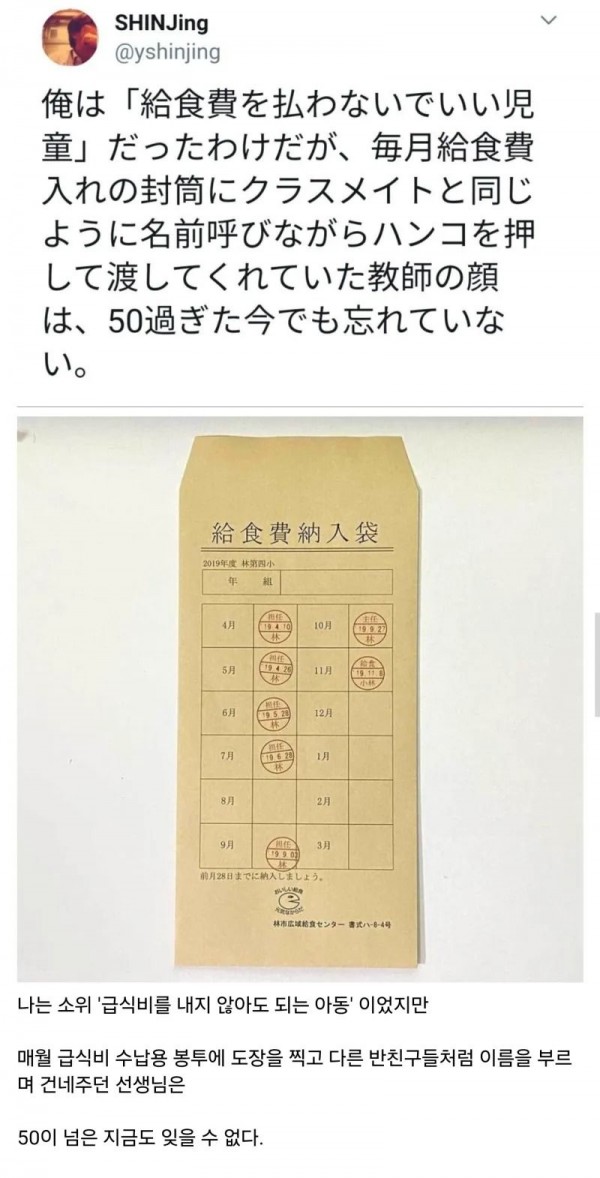 SHINJing
@yshinjing
俺は「給食費を払わないでいい児
童」だったわけだが、毎月給食費
入れの封筒にクラスメイトと同じ
ように名前呼びながらハンコを押
して渡してくれていた教師の顔
は、50過ぎた今でも忘れていな
い。
給食費納入袋
2019年度 林第四小
年 組
4月 担任 19.4.10 林 10月 主任 19.9.27 林
5月 担任 19.4.26 林 11月 給食 19.11.8 小林
6月 担任 19.5.28 林 12月
7月 担任 19.6.28 林 1月
8月 2月
9月 担任 19.9.03 林 3月
前月28日までに納入しましょう。
おいしい給食
林市広域給食センター 書式ハ-8-4号
나는 소위 '급식비를 내지 않아도 되는 아동' 이었지만
매월 급식비 수납용 봉투에 도장을 찍고 다른 반친구들처럼 이름을 부르
며 건네주던 선생님은
50이 넘은 지금도 잊을 수 없다.